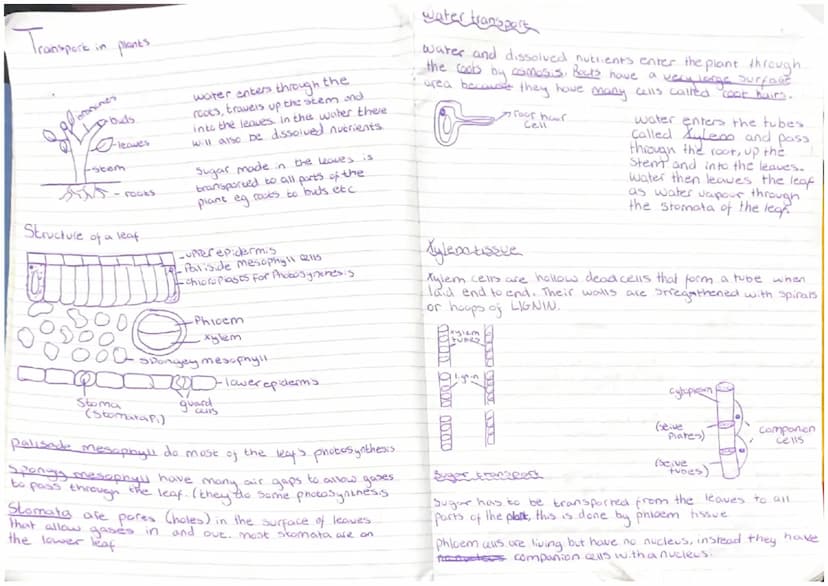 Transport in plants
water enters through the
roots, travels up the stem and
into the leaves. In the water there
will also be dissolved nutrients.
buds
leaves
stem
roots
Sugar made in the leaves is
transported to all parts of the
plant eg roots to buds etc
Structure of a leaf
upper epidermis
Palisade mesophyll cells
chloroplases for Photosynthesis
Phloem
xylem
spongey mesophyll
lower epiderms
Stoma
(Stomata Pl)
guard
cells
Palisade mesophyll do most of the leafs photosynthesis
Spongy mesophyll have many air gaps to allow gases
to pass through the leaf. (they do some photosynthesis
Stomata are pores (holes) in the surface of leaves
that allow gases in and out. most stomata are on
the lower leaf
Water transport
Water and dissolved nutrients enter the plant through
the roots by osmosis. Roots have a very large surface
area because they have many cells called root hairs.
root hair
cell
water enters the tubes
called Xylem and pass
through the root, up the
stem and into the leaves.
Water then leaves the leaf
as water vapour through
the stomata of the leaf.
Xylem tissue
Xylem cells are hollow dead cells that form a tube when
laid end to end. Their walls are strregathened with spirals
or hoops of LIGNIN.
xylem
tubes
lignin
cytoplasm
(seive
plates)
companion
cells
(seive
tubes)
Sugar transport
Sugar has to be transported from the leaves to all
parts of the plant, this is done by phloem tissue
Phloem cells are living but have no nucleus, instead they have
no nucleus companion cells with a nucleus.